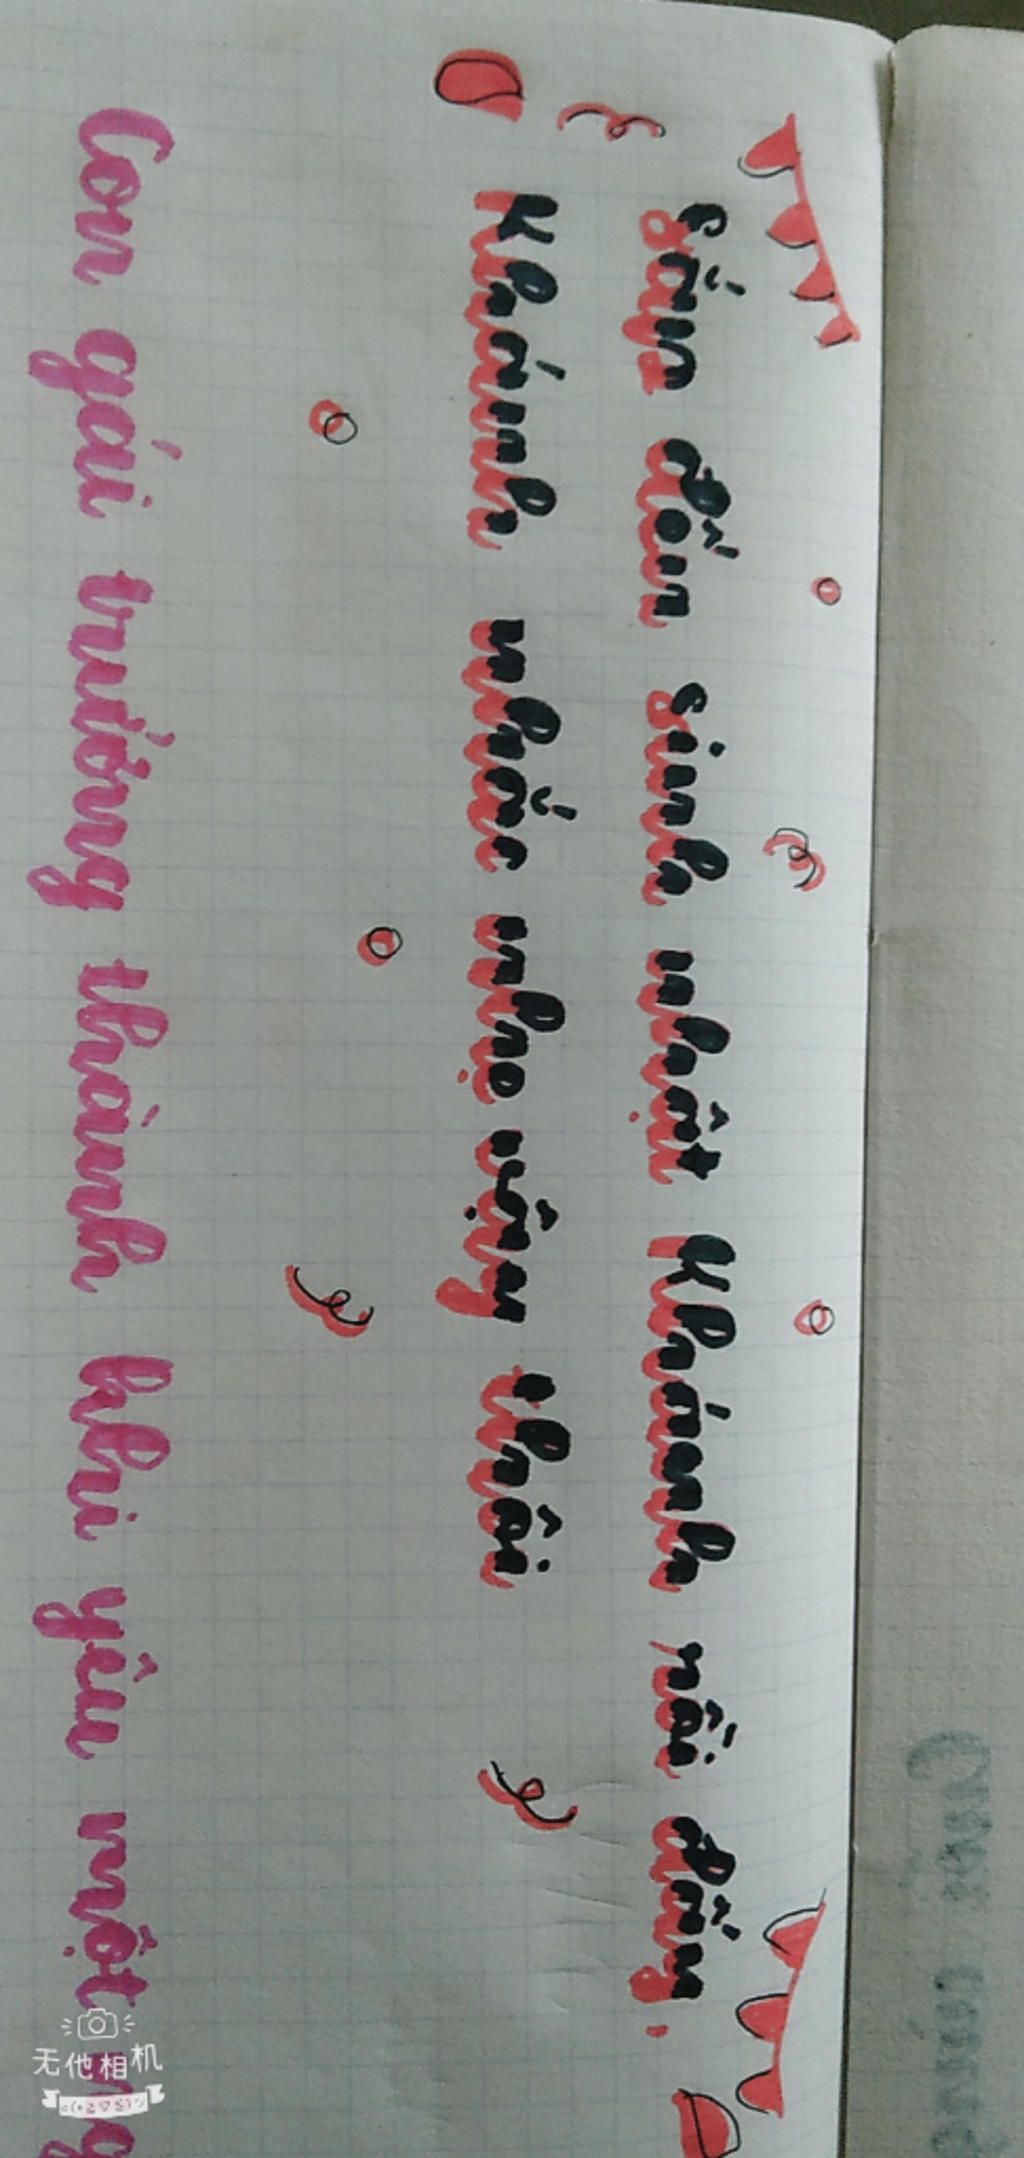 sắp đến sinh nhật Khánh rồi đấy,
Khánh nhắc nhẹ vậy thôi
Con gái trưởng thành khi yêu một
无他相机